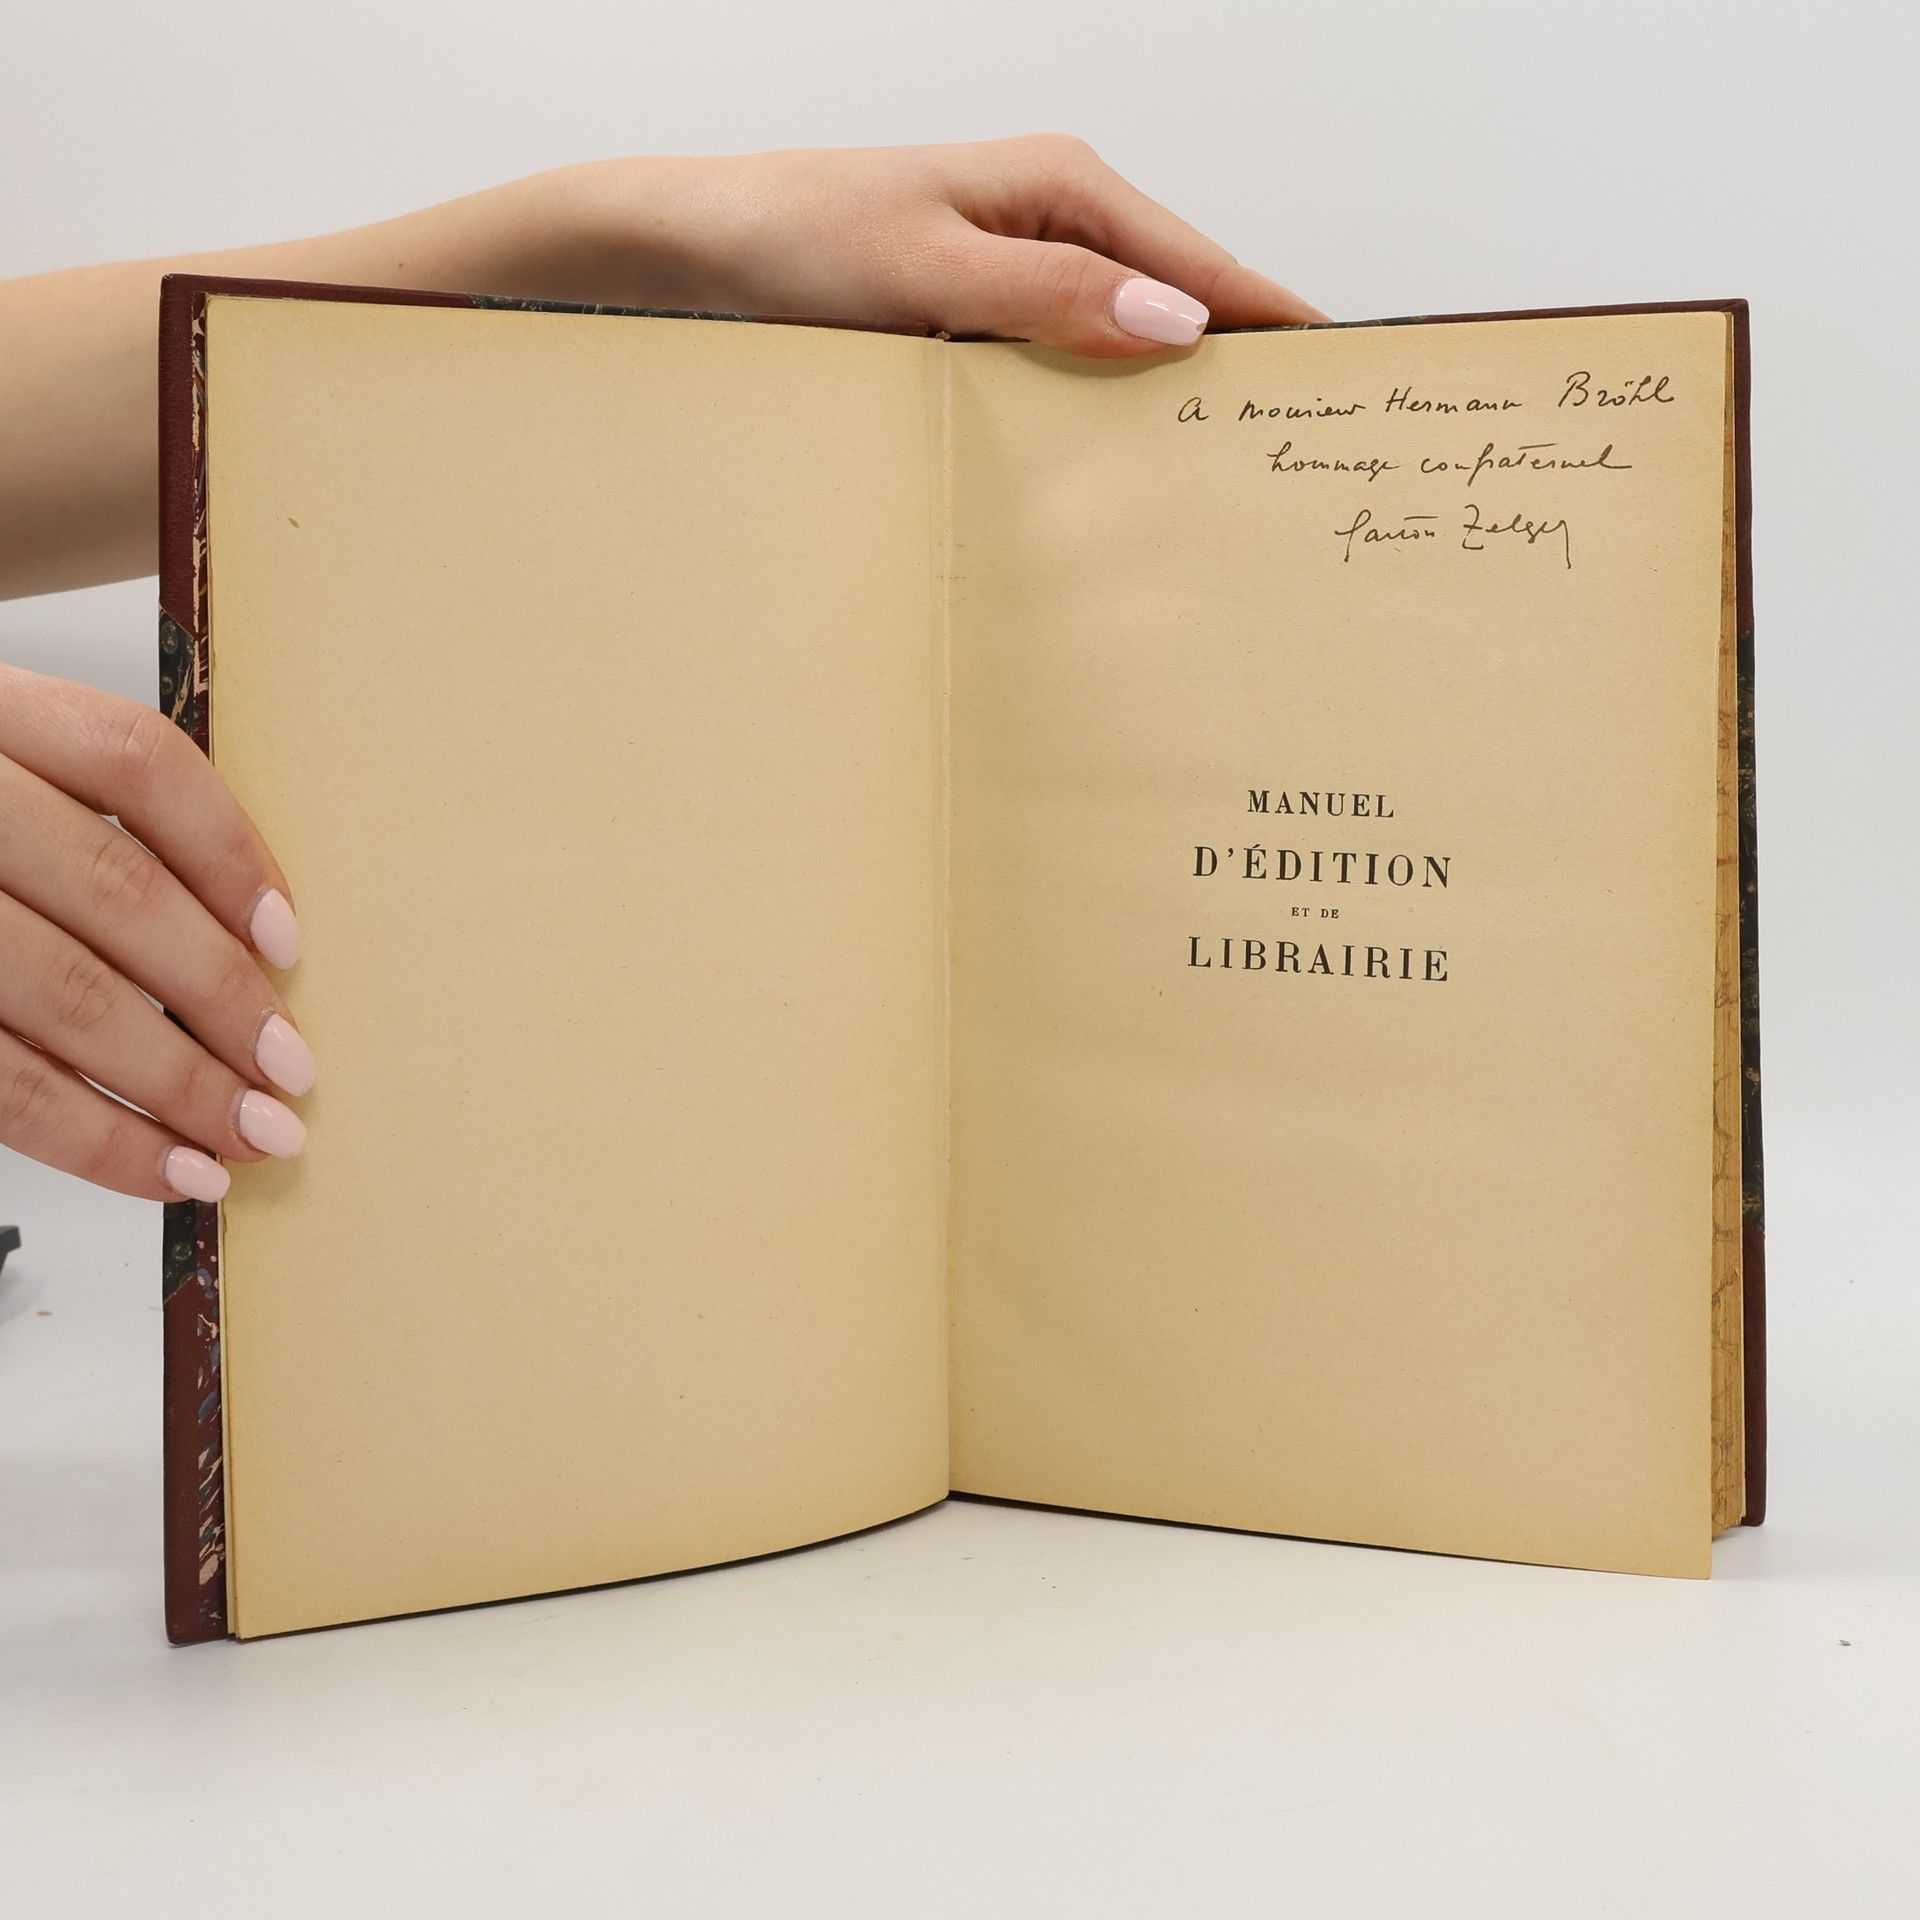 A monsieur Hermann Bröhl
hommage confraternel
Gaston Zelger
MANUEL
D'ÉDITION
ET DE
LIBRAIRIE